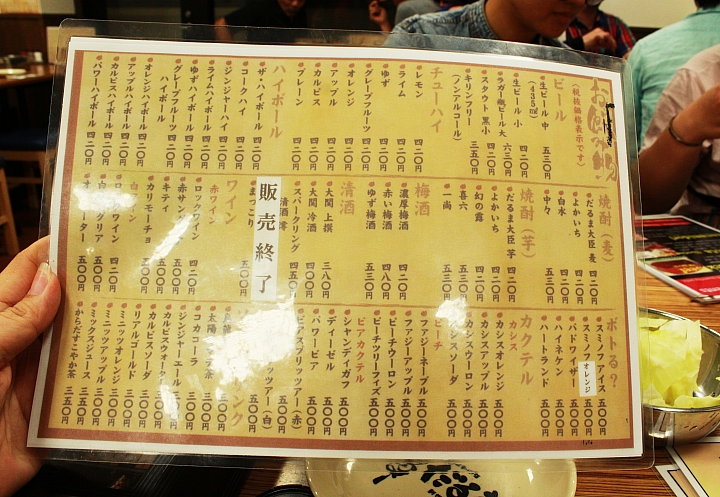 お飲み物
(税抜価格表示です)
ビール
生ビール 中 五三〇円
(435ml)
生ビール 小 四二〇円
ラガー瓶ビール 大 六三〇円
スタウト 黒小 四二〇円
キリンフリー 三五〇円
(ノンアルコール)
チューハイ
レモン 四二〇円
ライム 四二〇円
ゆず 四二〇円
グレープフルーツ 四二〇円
オレンジ 四二〇円
アップル 四二〇円
カルピス 四二〇円
プレーン 四二〇円
ハイボール
ザ・ハイボール 四二〇円
コークハイ 四二〇円
ジンジャーハイ 四二〇円
ライムハイボール 四二〇円
ゆずハイボール 四二〇円
グレープフルーツ
ハイボール 四二〇円
オレンジハイボール 四二〇円
アップルハイボール 四二〇円
カルピスハイボール 四二〇円
パワーハイボール 四二〇円
焼酎(麦)
だるま大臣 麦 四二〇円
よかいち 四二〇円
白水 四二〇円
中々 五三〇円
焼酎(芋)
だるま大臣 芋 四二〇円
よかいち 四二〇円
幻の露 四二〇円
喜六 五三〇円
一尚 五三〇円
梅酒
濃厚梅酒 四二〇円
赤い梅酒 四二〇円
ゆず梅酒 五三〇円
清酒
大関 上撰 三八〇円
大関 冷酒 五五〇円
スパークリング
清酒 澪 四五〇円
販売終了
まっこり 五〇〇円
ワイン
赤ワイン
ロックワイン 四二〇円
赤サング
キティ
カリモーチョ 五〇〇円
白ワイン
ロックワイン 四二〇円
白 クリア 五〇〇円
オペレーター 五〇〇円
ボトる?
スミノフ アイス 五〇〇円
スミノフ オレンジ 五〇〇円
バドワイザー 五〇〇円
ハイネケン 五〇〇円
ハートランド 五〇〇円
カクテル
カシス
カシスオレンジ 五〇〇円
カシスアップル 五〇〇円
カシスウーロン 五〇〇円
カシスソーダ 五〇〇円
ピーチ
ファジーネーブル 五〇〇円
ファジーアップル 五〇〇円
ピーチウーロン 五〇〇円
ピーチフリーフィズ 五〇〇円
ビアカクテル
シャンディガフ 五〇〇円
ディーゼル 五〇〇円
パワービア 五〇〇円
ビアスプリッツァー(赤) 五〇〇円
ッツァー(白) 五〇〇円
ンク
コカコーラ 三五〇円
ジンジャーエール 三五〇円
カルピスウォーター 三五〇円
カルピスソーダ 三五〇円
リアルゴールド 三五〇円
ミニッツオレンジ 三五〇円
ミニッツアップル 三五〇円
ミックスジュース 三五〇円
からだすこやか茶 三五〇円